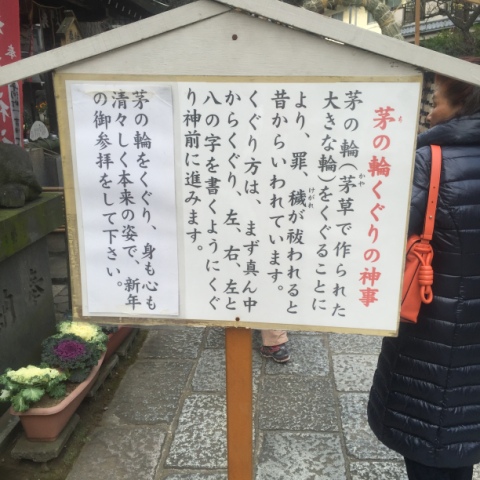 茅の輪くぐりの神事
茅の輪（茅草で作られた
大きな輪）をくぐることに
より、罪、穢が祓われると
昔からいわれています。
くぐり方は、まず真ん中
からくぐり、左、右、左と
八の字を書くようにくぐ
り神前に進みます。
茅の輪をくぐり、身も心も
清々しく本来の姿で、新年
の御参拝をして下さい。